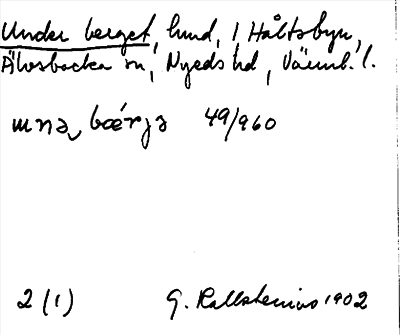 Under berget, hmd, i Håltsbyn,
Älvsbacka sn, Nyeds hd, Värml. l.
ɯnə bǽrjə 49/960
2 (1) G. Kallstenius 1902